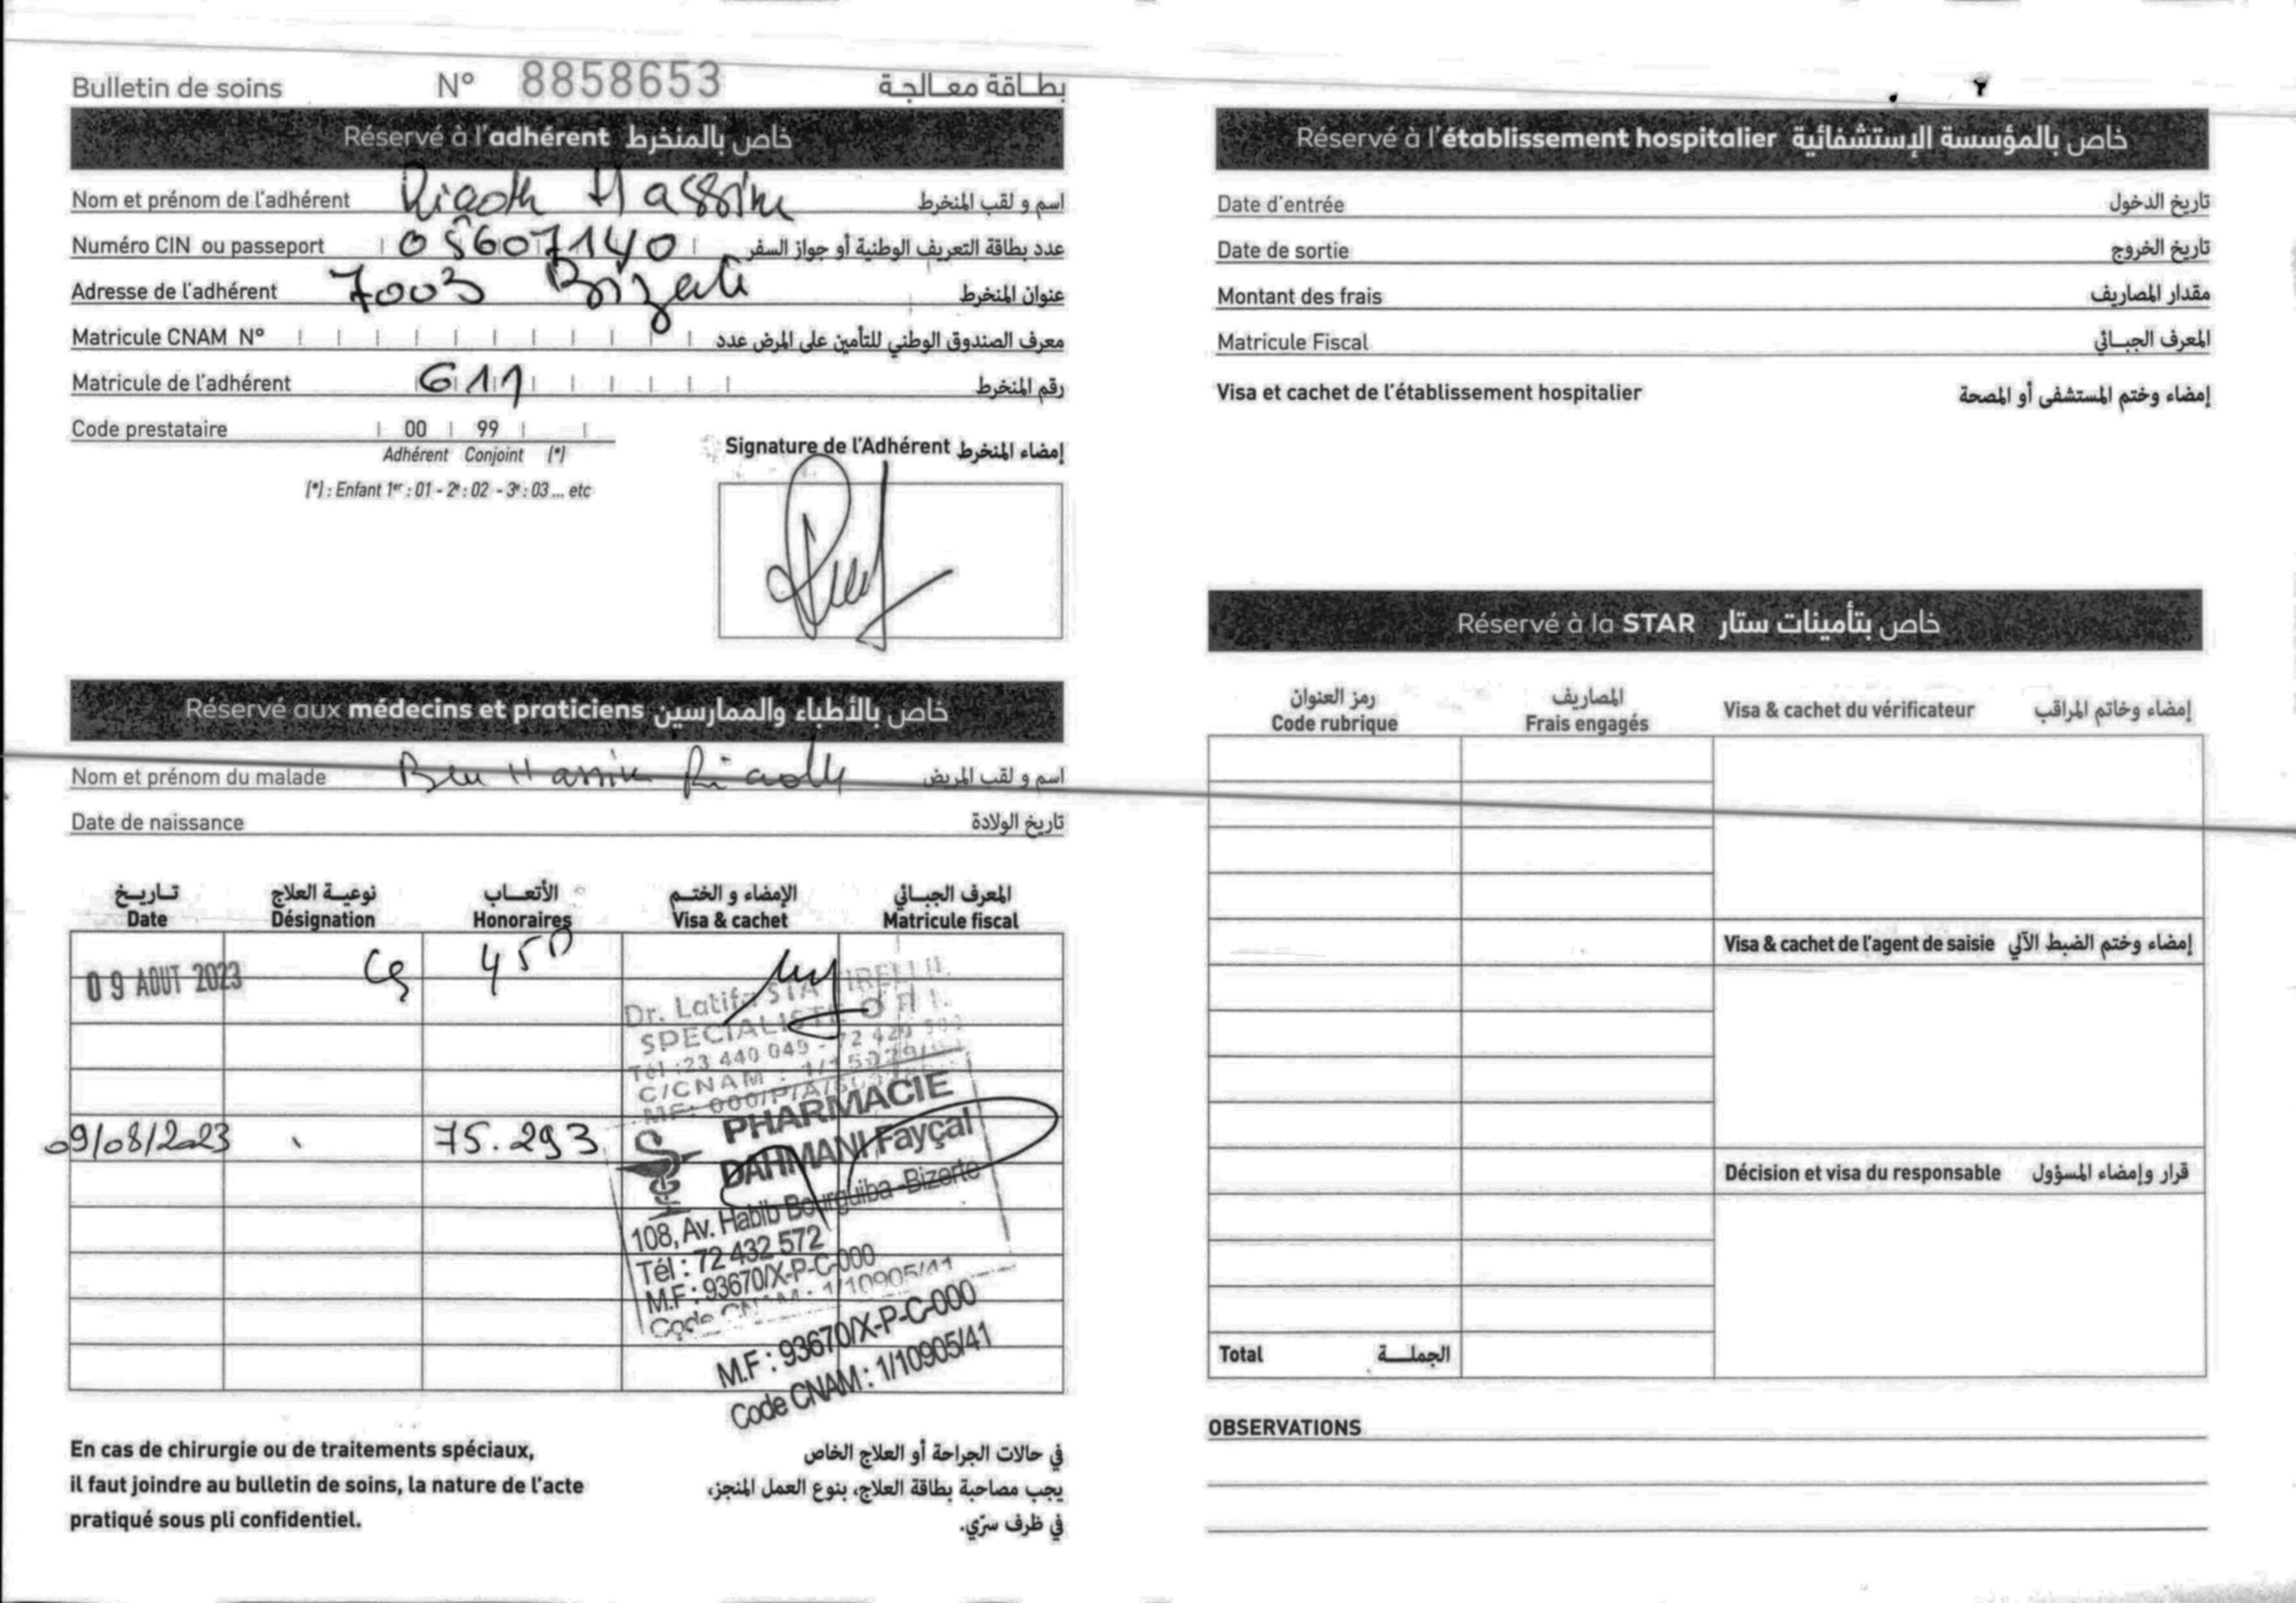 Bulletin de soins N° 8858653 بطاقة معالجة
Réservé à l'adhérent خاص بالمنخرط
Nom et prénom de l'adhérent Riadh Hassine اسم و لقب المنخرط
Numéro CIN ou passeport 05607140 عدد بطاقة التعريف الوطنية أو جواز السفر
Adresse de l'adhérent 7003 Bizerte عنوان المنخرط
Matricule CNAM N° معرف الصندوق الوطني للتأمين على المرض عدد
Matricule de l'adhérent 611 رقم المنخرط
Code prestataire 00 99
Adhérent Conjoint (*)
(*) : Enfant 1er : 01 - 2e : 02 - 3e : 03 ... etc
Signature de l'Adhérent إمضاء المنخرط
Réservé aux médecins et praticiens خاص بالأطباء والممارسين
Nom et prénom du malade Ben Hassine Riadh اسم و لقب المريض
Date de naissance تاريخ الولادة
تاريخ نوعية العلاج الأتعاب الإمضاء و الختم المعرف الجبائي
Date Désignation Honoraires Visa & cachet Matricule fiscal
09 AOUT 2023 Cs 45D
Dr. Latifa
SPECIALISTE O.R.L.
Tél :23 440 049 - 72 429
C/CNAM :
MF: 000/P/A/
09/08/2023 75.293
PHARMACIE
DAHMANI Fayçal
108, Av. Habib Bourguiba -Bizerte
Tél : 72 432 572
M.F : 93670/X-P-C-000
Code CNAM : 1/10905/41
M.F : 93670/X-P-C-000
Code CNAM : 1/10905/41
En cas de chirurgie ou de traitements spéciaux,
il faut joindre au bulletin de soins, la nature de l'acte
pratiqué sous pli confidentiel.
في حالات الجراحة أو العلاج الخاص
يجب مصاحبة بطاقة العلاج، بنوع العمل المنجز،
في ظرف سرّي.
Réservé à l'établissement hospitalier خاص بالمؤسسة الإستشفائية
Date d'entrée تاريخ الدخول
Date de sortie تاريخ الخروج
Montant des frais مقدار المصاريف
Matricule Fiscal المعرف الجبائي
Visa et cachet de l'établissement hospitalier إمضاء وختم المستشفى أو المصحة
Réservé à la STAR خاص بتأمينات ستار
رمز العنوان المصاريف
Code rubrique Frais engagés Visa & cachet du vérificateur إمضاء وخاتم المراقب
Visa & cachet de l'agent de saisie إمضاء وختم الضبط الآلي
Décision et visa du responsable قرار وإمضاء المسؤول
Total الجملة
OBSERVATIONS